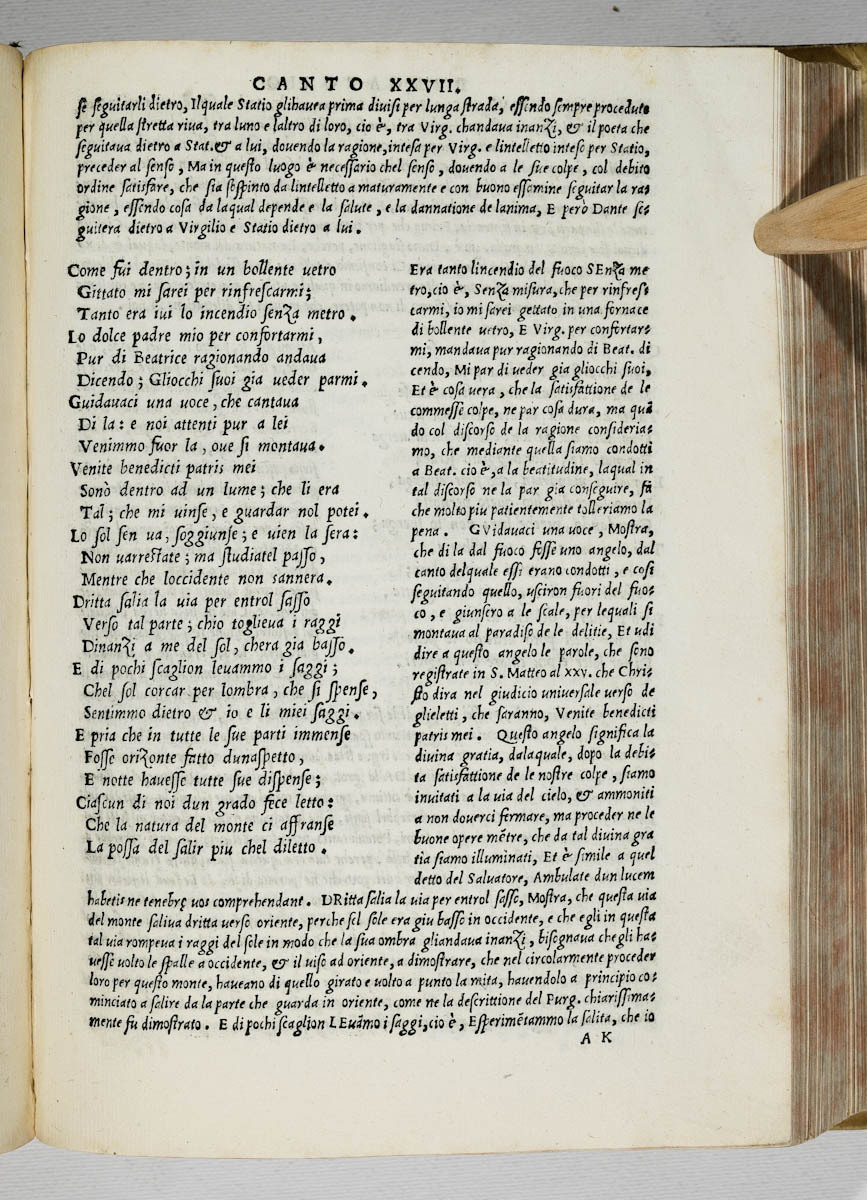 CANTO XXVII.
se seguitarli dietro, Ilquale Statio glihauea prima diuisi per lunga strada, essendo sempre proceduto
per quella stretta riua, tra luno e laltro di loro, cio è, tra Virg. chandaua inanzi, & il poeta che
seguitaua dietro a Stat. & a lui, douendo la ragione, intesa per Virg. e lintelletto inteso per Statio,
preceder al senso, Ma in questo luogo è necessario chel senso, douendo a le sue colpe, col debito
ordine satisfare, che sia sespinto da lintelletto a maturamente e con buono essamine seguitar la ra=
gione, essendo cosa da laqual depende e la salute, e la dannatione de lanima, E però Dante se=
guitera dietro a Virgilio e Statio dietro a lui.
Come fui dentro; in un bollente uetro
Gittato mi sarei per rinfrescarmi;
Tanto era iui lo incendio senza metro.
Lo dolce padre mio per confortarmi,
Pur di Beatrice ragionando andaua
Dicendo; Gliocchi suoi gia ueder parmi.
Guidauaci una uoce, che cantaua
Di la: e noi attenti pur a lei
Venimmo fuor la, oue si montaua.
Venite benedicti patris mei
Sonò dentro ad un lume; che li era
Tal; che mi uinse, e guardar nol potei.
Lo sol sen ua, soggiunse; e uien la sera:
Non uarrestate; ma studiatel passo,
Mentre che loccidente non sannera.
Dritta salia la uia per entrol sasso
Verso tal parte; chio toglieua i raggi
Dinanzi a me del sol, chera gia basso.
E di pochi scaglion leuammo i saggi;
Chel sol corcar per lombra, che si spense,
Sentimmo dietro & io e li miei saggi.
E pria che in tutte le sue parti immense
Fosse orizonte fatto dunaspetto,
E notte hauesse tutte sue dispense;
Ciascun di noi dun grado fece letto:
Che la natura del monte ci affranse
La possa del salir piu chel diletto.
Era tanto lincendio del fuoco SEnza me
tro, cio è, Senza misura, che per rinfres
carmi, io mi sarei gettato in una fornace
di bollente uetro, E Virg. per confortar=
mi, mandaua pur ragionando di Beat. di
cendo, Mi par di ueder gia gliocchi suoi,
Et è cosa uera, che la satisfattione de le
commesse colpe, ne par cosa dura, ma quã
do col discorso de la ragione consideria=
mo, che mediante quella siamo condotti
a Beat. cio è, a la beatitudine, laqual in
tal discorso ne la par gia conseguire, fa
che molto piu patientemente tolleriamo la
pena. GVidauaci una uoce, Mostra,
che di la dal fuoco fosse uno angelo, dal
canto delquale essi erano condotti, e cosi
seguitando quello, usciron fuori del fuo=
co, e giunsero a le scale, per lequali si
montaua al paradiso de le delitie, Et udi
dire a questo angelo le parole, che sono
registrate in S. Matteo al xxv. che Chri=
sto dira nel giudicio uniuersale uerso de
glieletti, che saranno, Venite benedicti
patris mei. Questo angelo significa la
diuina gratia, dalaquale, dopo la debi=
ta satisfattione de le nostre colpe, siamo
inuitati a la uia del cielo, & ammoniti
a non douerci fermare, ma proceder ne le
buone opere mẽtre, che da tal diuina gra
tia siamo illuminati, Et è simile a quel
detto del Saluatore, Ambulate dun lucem
habetis ne tenebrę uos comprehendant. DRitta salia la uia per entrol sasso, Mostra, che questa uia
del monte saliua dritta uerso oriente, perche sel sole era giu basso in occidente, e che egli in questa
tal uia rompeua i raggi del sole in modo che la sua ombra gliandaua inanzi, bisognaua che gli ha=
uesse uolto le spalle a occidente, & il uiso ad oriente, a dimostrare, che nel circolarmente proceder
loro per questo monte, haueano di quello girato e uolto a punto la mita, hauendolo a principio co=
minciato a salire da la parte che guarda in oriente, come ne la descrittione del Purg. chiarissima=
mente fu dimostrato. E di pochi scaglion LEuãmo i saggi, cio è, Esperimẽtammo la salita, che io
A K